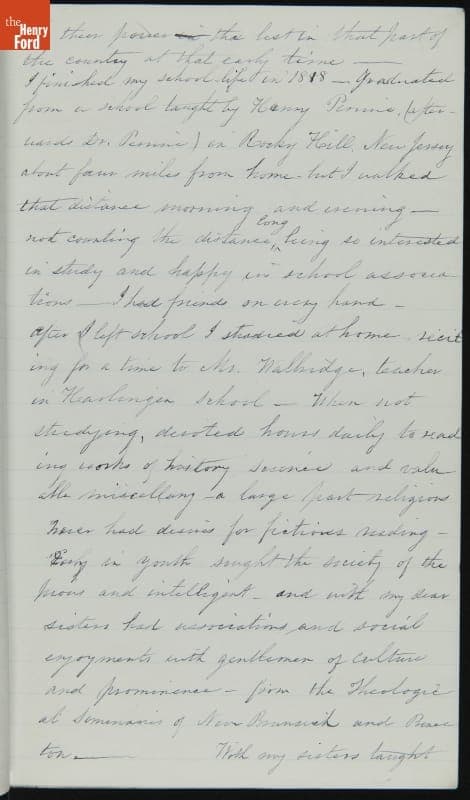 the
Henry
Ford
their power in the best in that part of
the country at that early time —
I finished my school life in 1818 — Graduated
from a school taught by Henry Perrine, (after-
wards Dr. Perrine) in Rocky Hill, New Jersey
about four miles from home - but I walked
that distance morning and evening —
long
not counting the distance, being so interested
in study and happy in school associa
tions — I had friends on every hand -
After I left school I studied at home recit
ing for a time to Mr. Walbridge, teacher
in Harlingen School — When not
studying, devoted hours daily to read
ing works of history science and valu
able miscellany - a large part religious
Never had desires for fictions reading -
Early in youth sought the society of the
pious and intelligent - and with my dear
sisters had associations and social
enjoyments with gentlemen of culture
and prominence - from the Theologic
al Seminaries of New Brunswick and Prince
ton — With my sisters taught